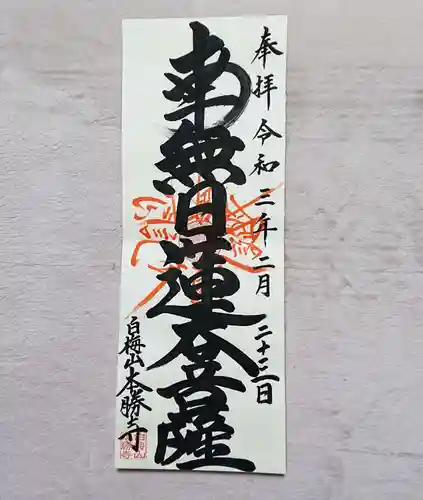 奉拝 令和三年二月二十二日
南無日蓮大菩薩
白梅山本勝寺